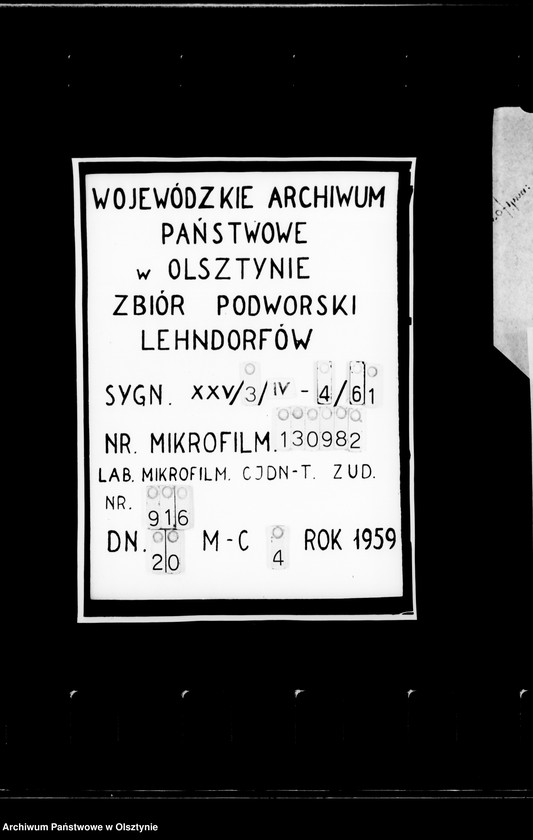 WOJEWÓDZKIE ARCHIWUM
PAŃSTWOWE
w OLSZTYNIE
ZBIÓR PODWORSKI
LEHNDORFÓW
SYGN. XXV/3/IV - 4/61
NR. MIKROFILM. 130982
LAB. MIKROFILM. CJDN-T. ZUD.
NR. 916
DN. 20 M-C 4 ROK 1959
Archiwum Państwowe w Olsztynie